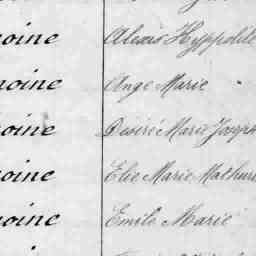 moine Alexis Hyppolite
moine Ange Marie
moine Désiré Marie Joseph
moine Elie Marie Mathuri
moine Emile Marie